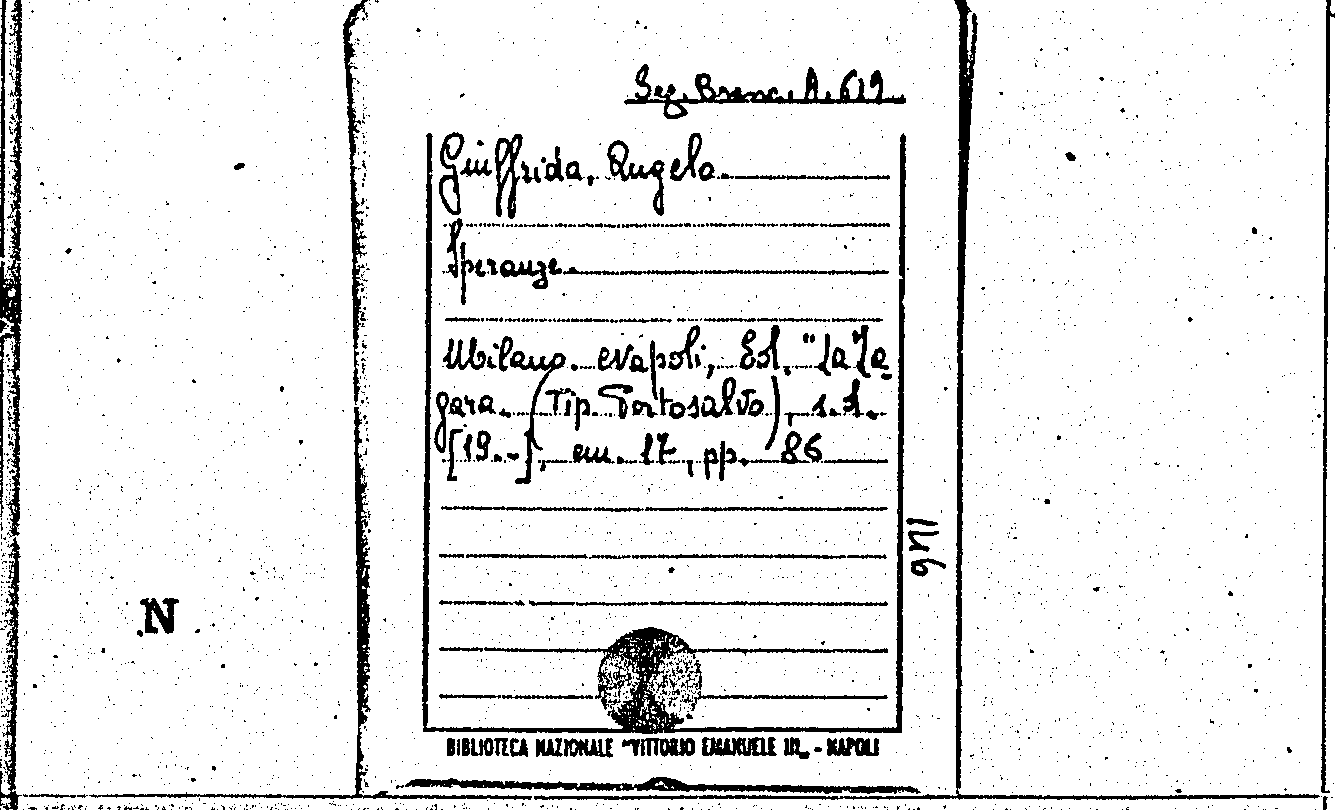 Seg. Branc. A. 619.
Giuffrida, Angelo.
Speranze.
Milano. Napoli, Ed. "La Za-
gara. (Tip. Portosalvo), s.d.
[19..], cm. 17, pp. 86
N
BIBLIOTECA NAZIONALE "VITTORIO EMANUELE III„ - NAPOLI